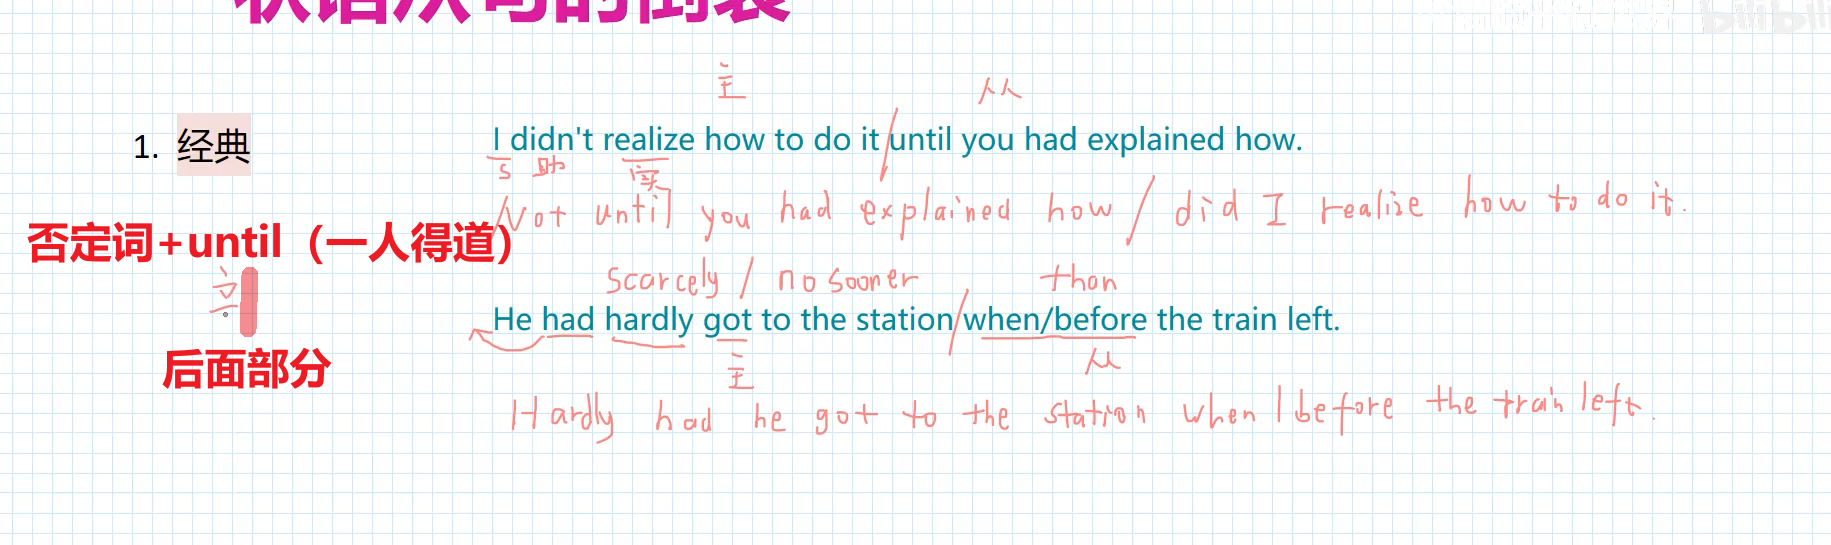 状语从句的倒装
bilibili
主 从
1. 经典 I didn't realize how to do it until you had explained how.
S 助 实
Not until you had explained how / did I realize how to do it.
否定词+until（一人得道）
scarcely / no sooner than
He had hardly got to the station when/before the train left.
主 从
后面部分
Hardly had he got to the station when / before the train left.